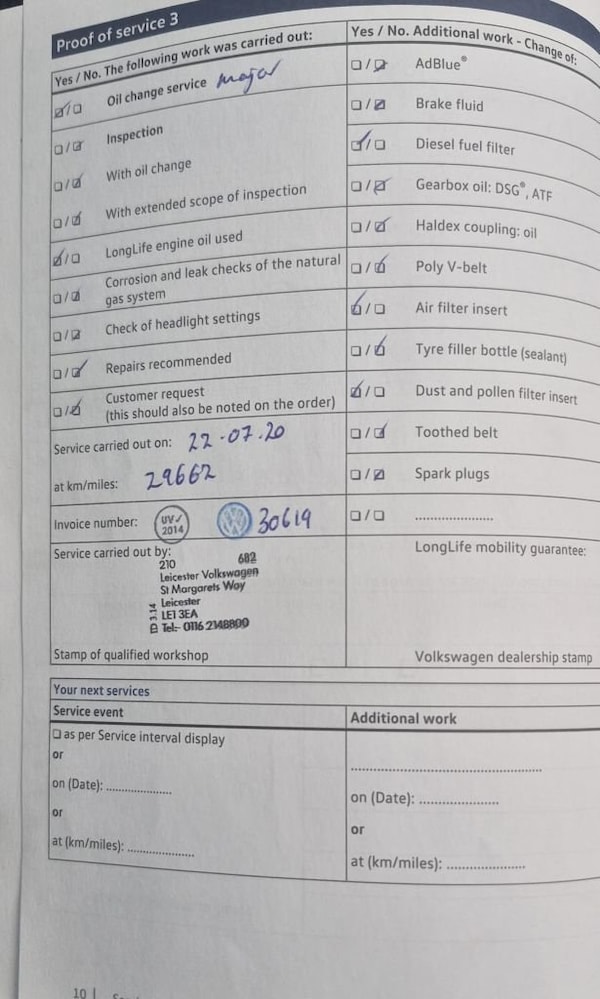 Proof of service 3
Yes / No. The following work was carried out:
Oil change service major
Inspection
With oil change
With extended scope of inspection
LongLife engine oil used
Corrosion and leak checks of the natural
gas system
Check of headlight settings
Repairs recommended
Customer request
(this should also be noted on the order)
Service carried out on: 22-07.20
at km/miles: 29662
Invoice number: UV✓ 2014 VW 30619
Service carried out by:
210 682
Leicester Volkswagen
St Margarets Way
Leicester
LE1 3EA
Tel:- 0116 2148800
ID 3.14
Stamp of qualified workshop
Yes / No. Additional work - Change of:
AdBlue®
Brake fluid
Diesel fuel filter
Gearbox oil: DSG®, ATF
Haldex coupling: oil
Poly V-belt
Air filter insert
Tyre filler bottle (sealant)
Dust and pollen filter insert
Toothed belt
Spark plugs
......................
LongLife mobility guarantee:
Volkswagen dealership stamp
Your next services
Service event
as per Service interval display
or
on (Date): ..................
or
at (km/miles): ..................
Additional work
..................................................
on (Date): .....................
or
at (km/miles): .....................
10